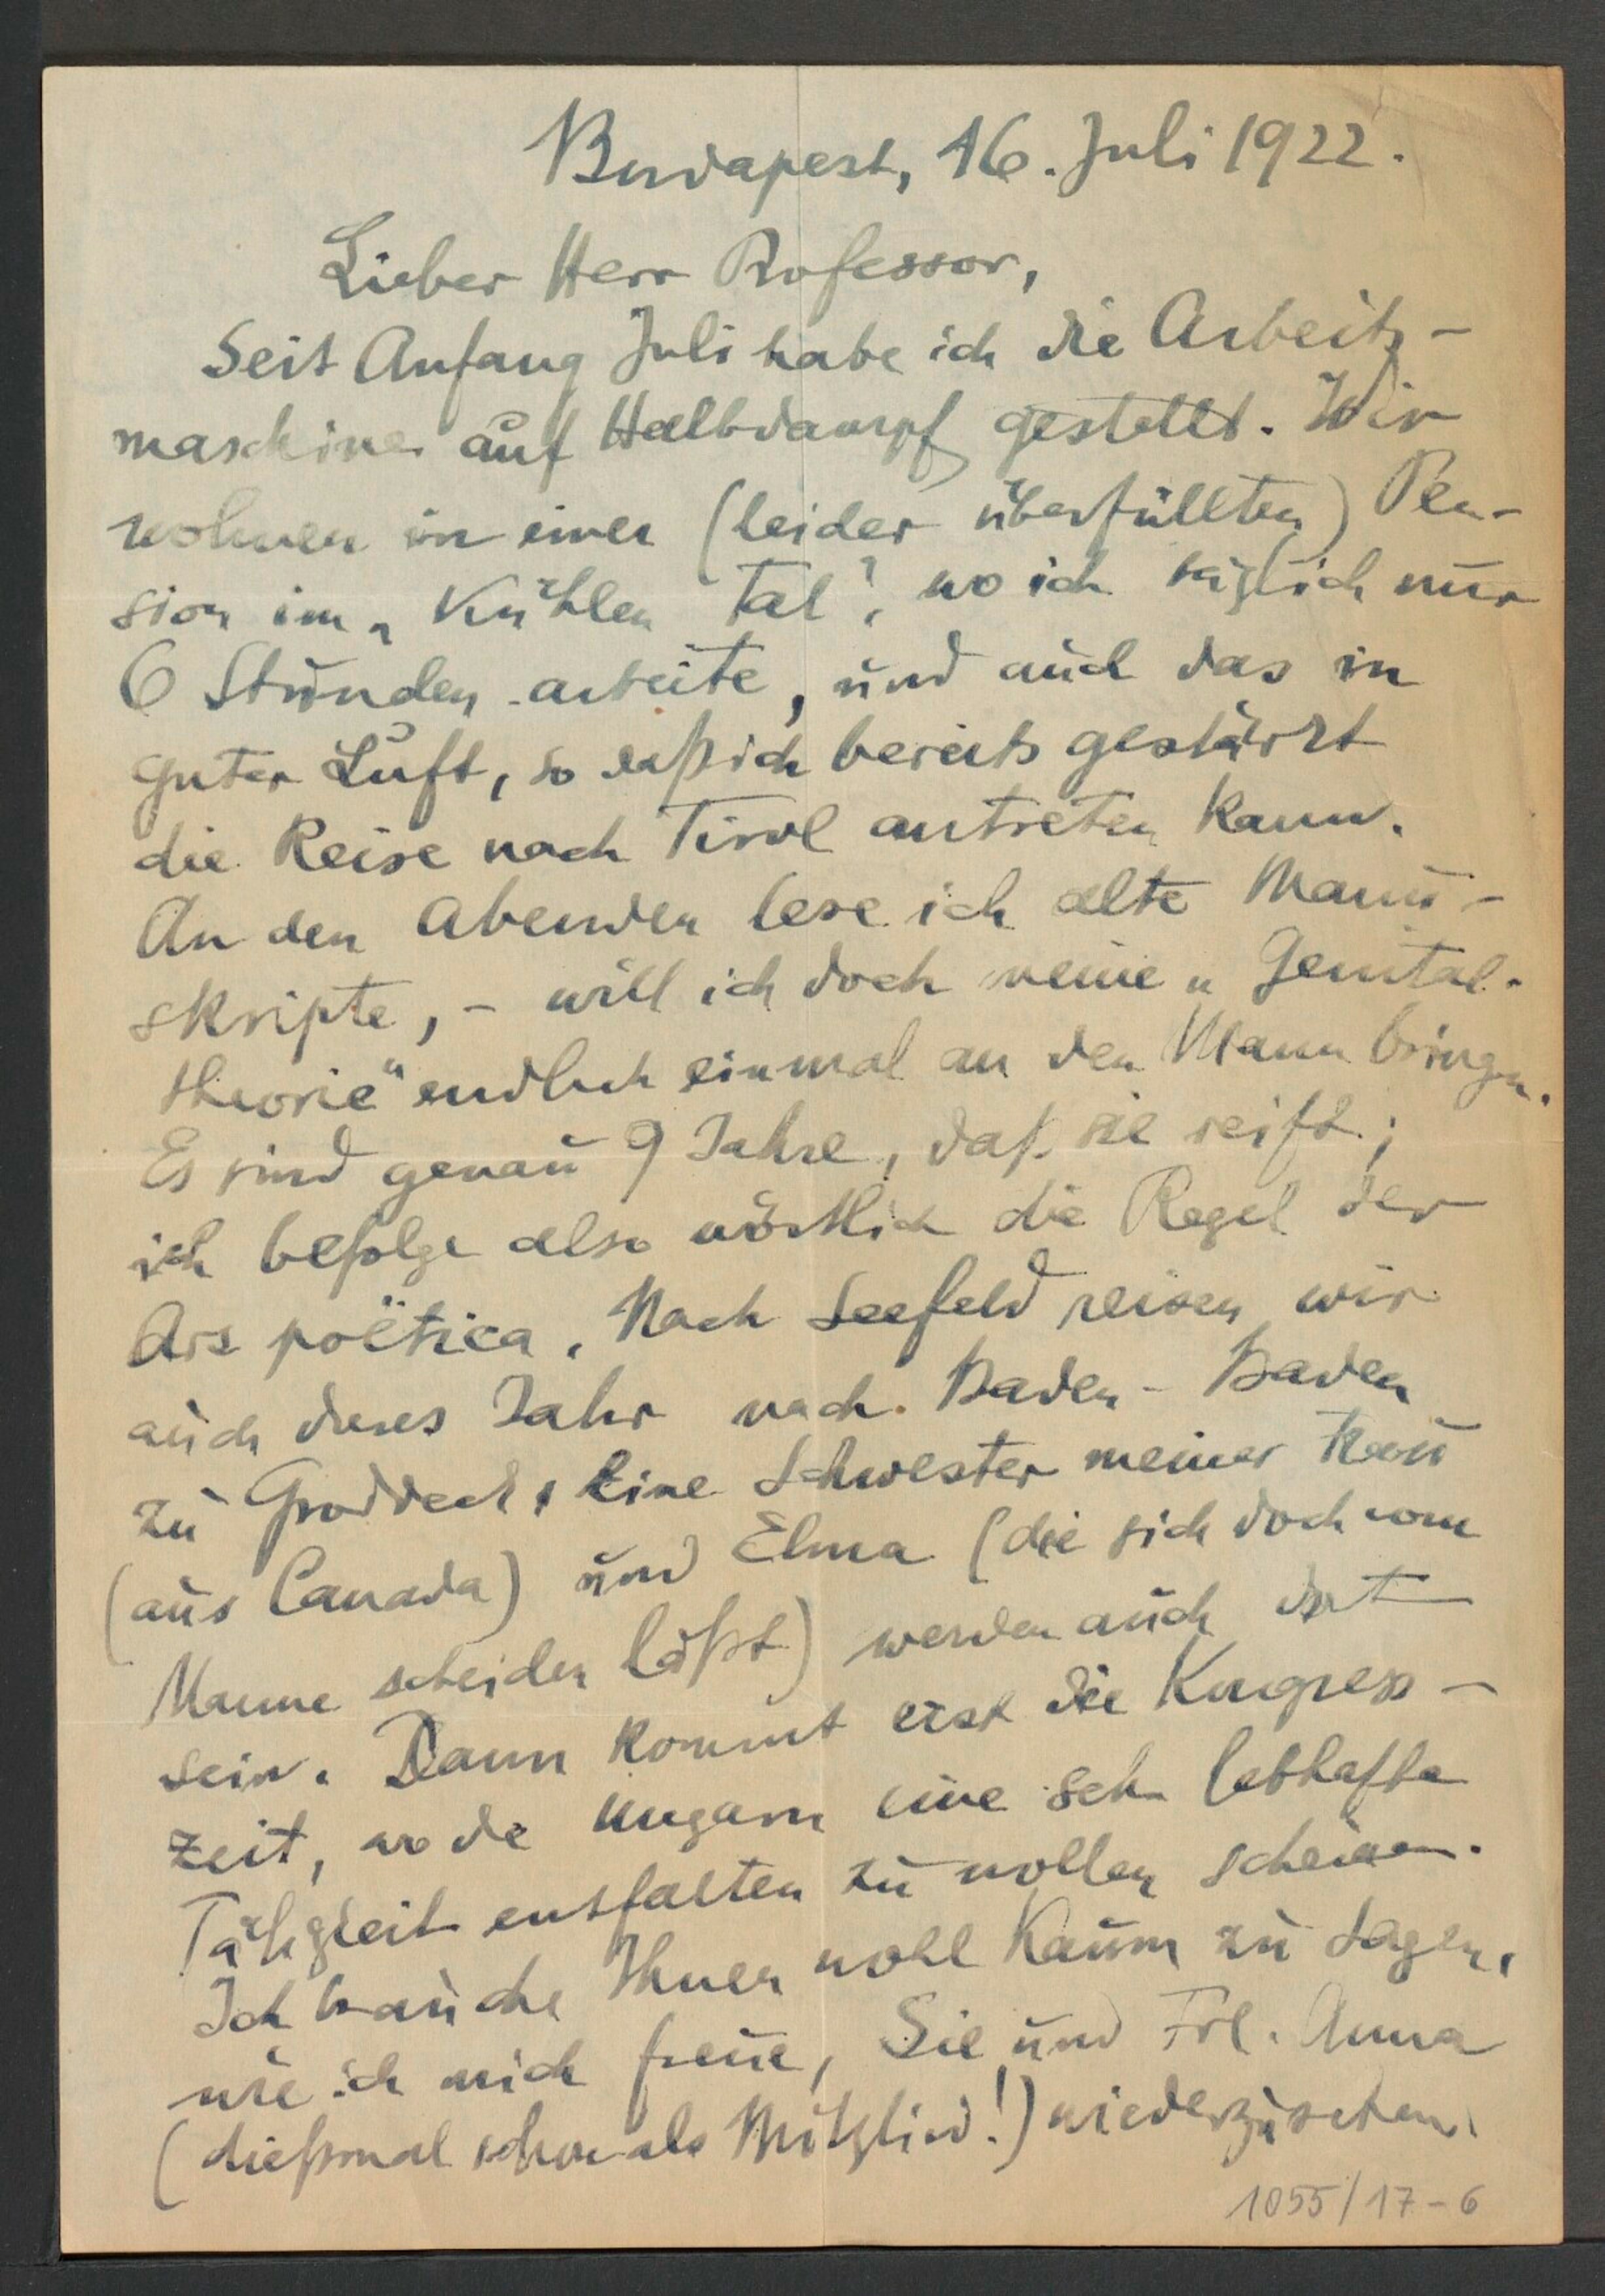 Budapest, 16. Juli 1922.
Lieber Herr Professor,
Seit Anfang Juli habe ich die Arbeits-
maschine auf Halbdampf gestellt. Wir
wohnen in einer (leider überfüllten) Pen-
sion im „Kühlen Tal“, wo ich täglich nur
6 Stunden arbeite, und auch das in
guter Luft, so daß ich bereits gestärkt
die Reise nach Tirol antreten kann.
An den Abenden lese ich alte Manu-
skripte, – will ich doch meine „Genital-
theorie“ endlich einmal an den Mann bringen.
Es sind genau 9 Jahre, daß sie reift;
ich befolge also wörtlich die Regel der
Ars poëtica. Nach Seefeld reisen wir
auch dieses Jahr nach Baden-Baden
zu Groddeck, Eine Schwester meiner Frau
(aus Canada) und Elma (die sich doch vom
Manne scheiden läßt) werden auch dort
sein. Dann kommt erst die Kongress-
zeit, wo die Ungarn eine sehr lebhafte
Tätigkeit entfalten zu wollen scheinen.
Ich brauche Ihnen wohl kaum zu sagen,
wie ich mich freue, Sie und Frl. Anna
(dießmal schon als Mitglied!) wiederzusehen.
1055/17-6